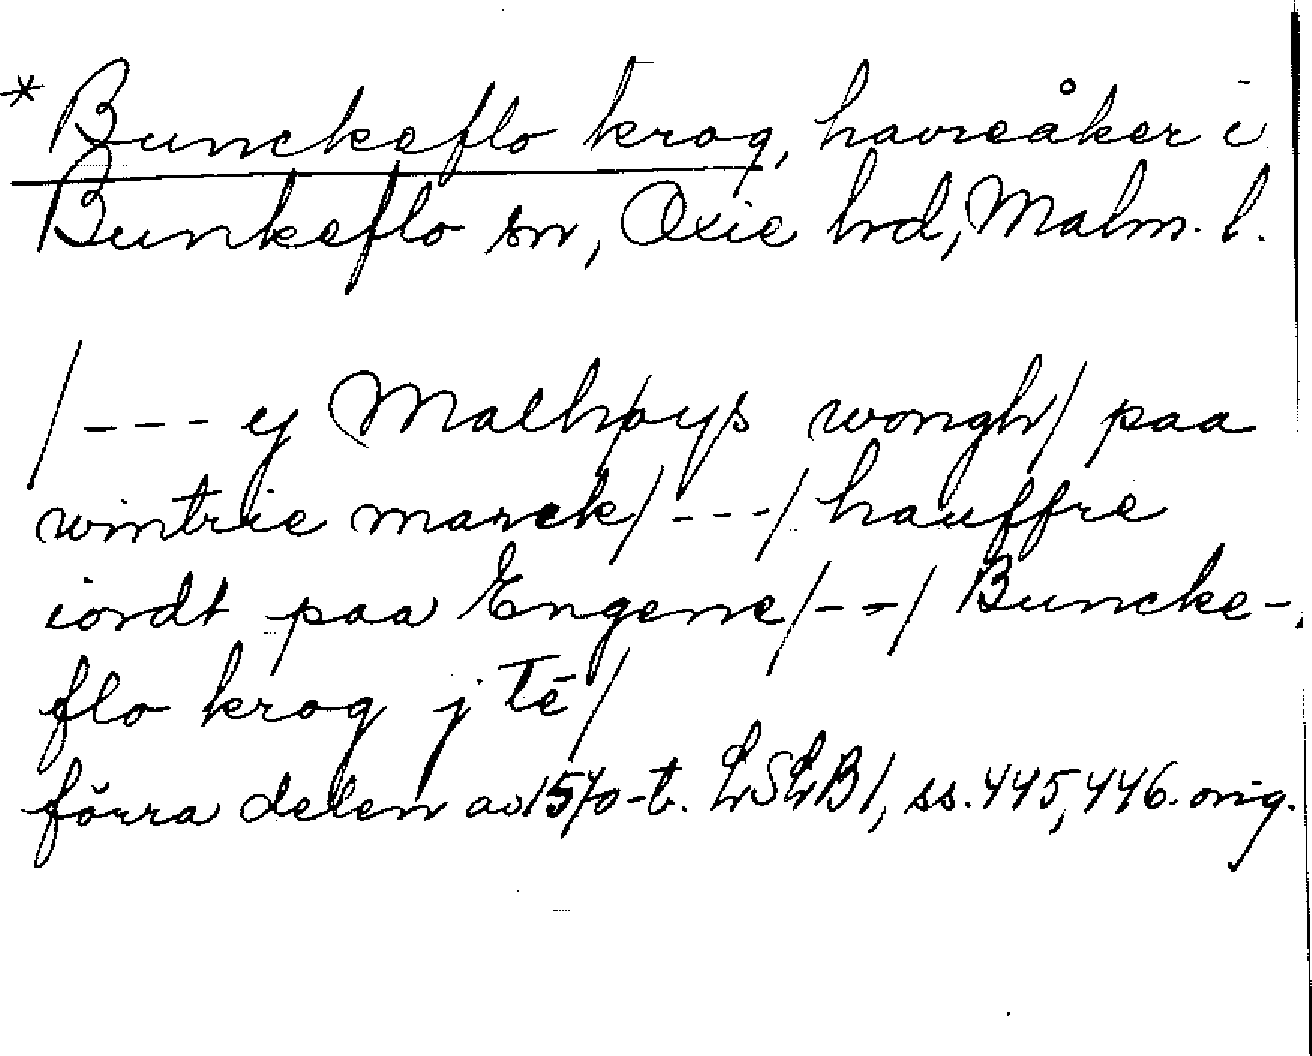 * Bunckeflo krog, havreåker i
Bunkeflo sn, Oxie hd, Malm. l.
/--- ej Malhøys wongh/ paa
wintrie marck/---/ hauffre
iordt paa Engene/--/ Buncke-
flo krog j Tē/
förra delen av 1570-t. LSLB 1, ss. 445, 446. orig.